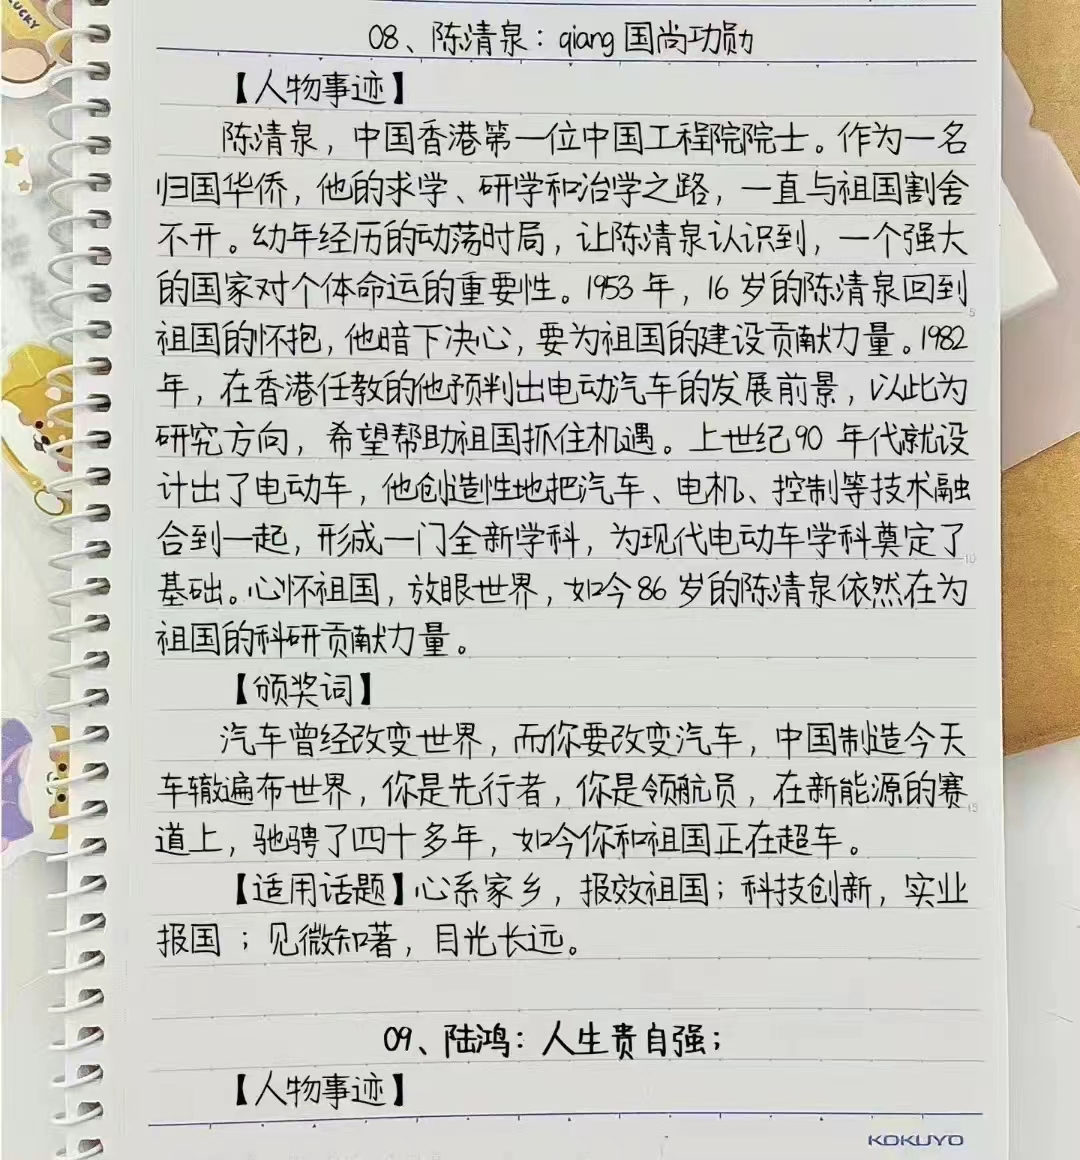 LUCKY
08、陈清泉：qiang国尚功勋
【人物事迹】
陈清泉，中国香港第一位中国工程院院士。作为一名
归国华侨，他的求学、研学和治学之路，一直与祖国割舍
不开。幼年经历的动荡时局，让陈清泉认识到，一个强大
的国家对个体命运的重要性。1953年，16岁的陈清泉回到
祖国的怀抱，他暗下决心，要为祖国的建设贡献力量。1982
年，在香港任教的他预判出电动汽车的发展前景，以此为
研究方向，希望帮助祖国抓住机遇。上世纪90年代就设
计出了电动车，他创造性地把汽车、电机、控制等技术融
合到一起，形成一门全新学科，为现代电动车学科奠定了
基础。心怀祖国，放眼世界，如今86岁的陈清泉依然在为
祖国的科研贡献力量。
【颁奖词】
汽车曾经改变世界，而你要改变汽车，中国制造今天
车辙遍布世界，你是先行者，你是领航员，在新能源的赛
道上，驰骋了四十多年，如今你和祖国正在超车。
【适用话题】心系家乡，报效祖国；科技创新，实业
报国；见微知著，目光长远。
09、陆鸿：人生贵自强；
【人物事迹】
KOKUYO
5
10
15